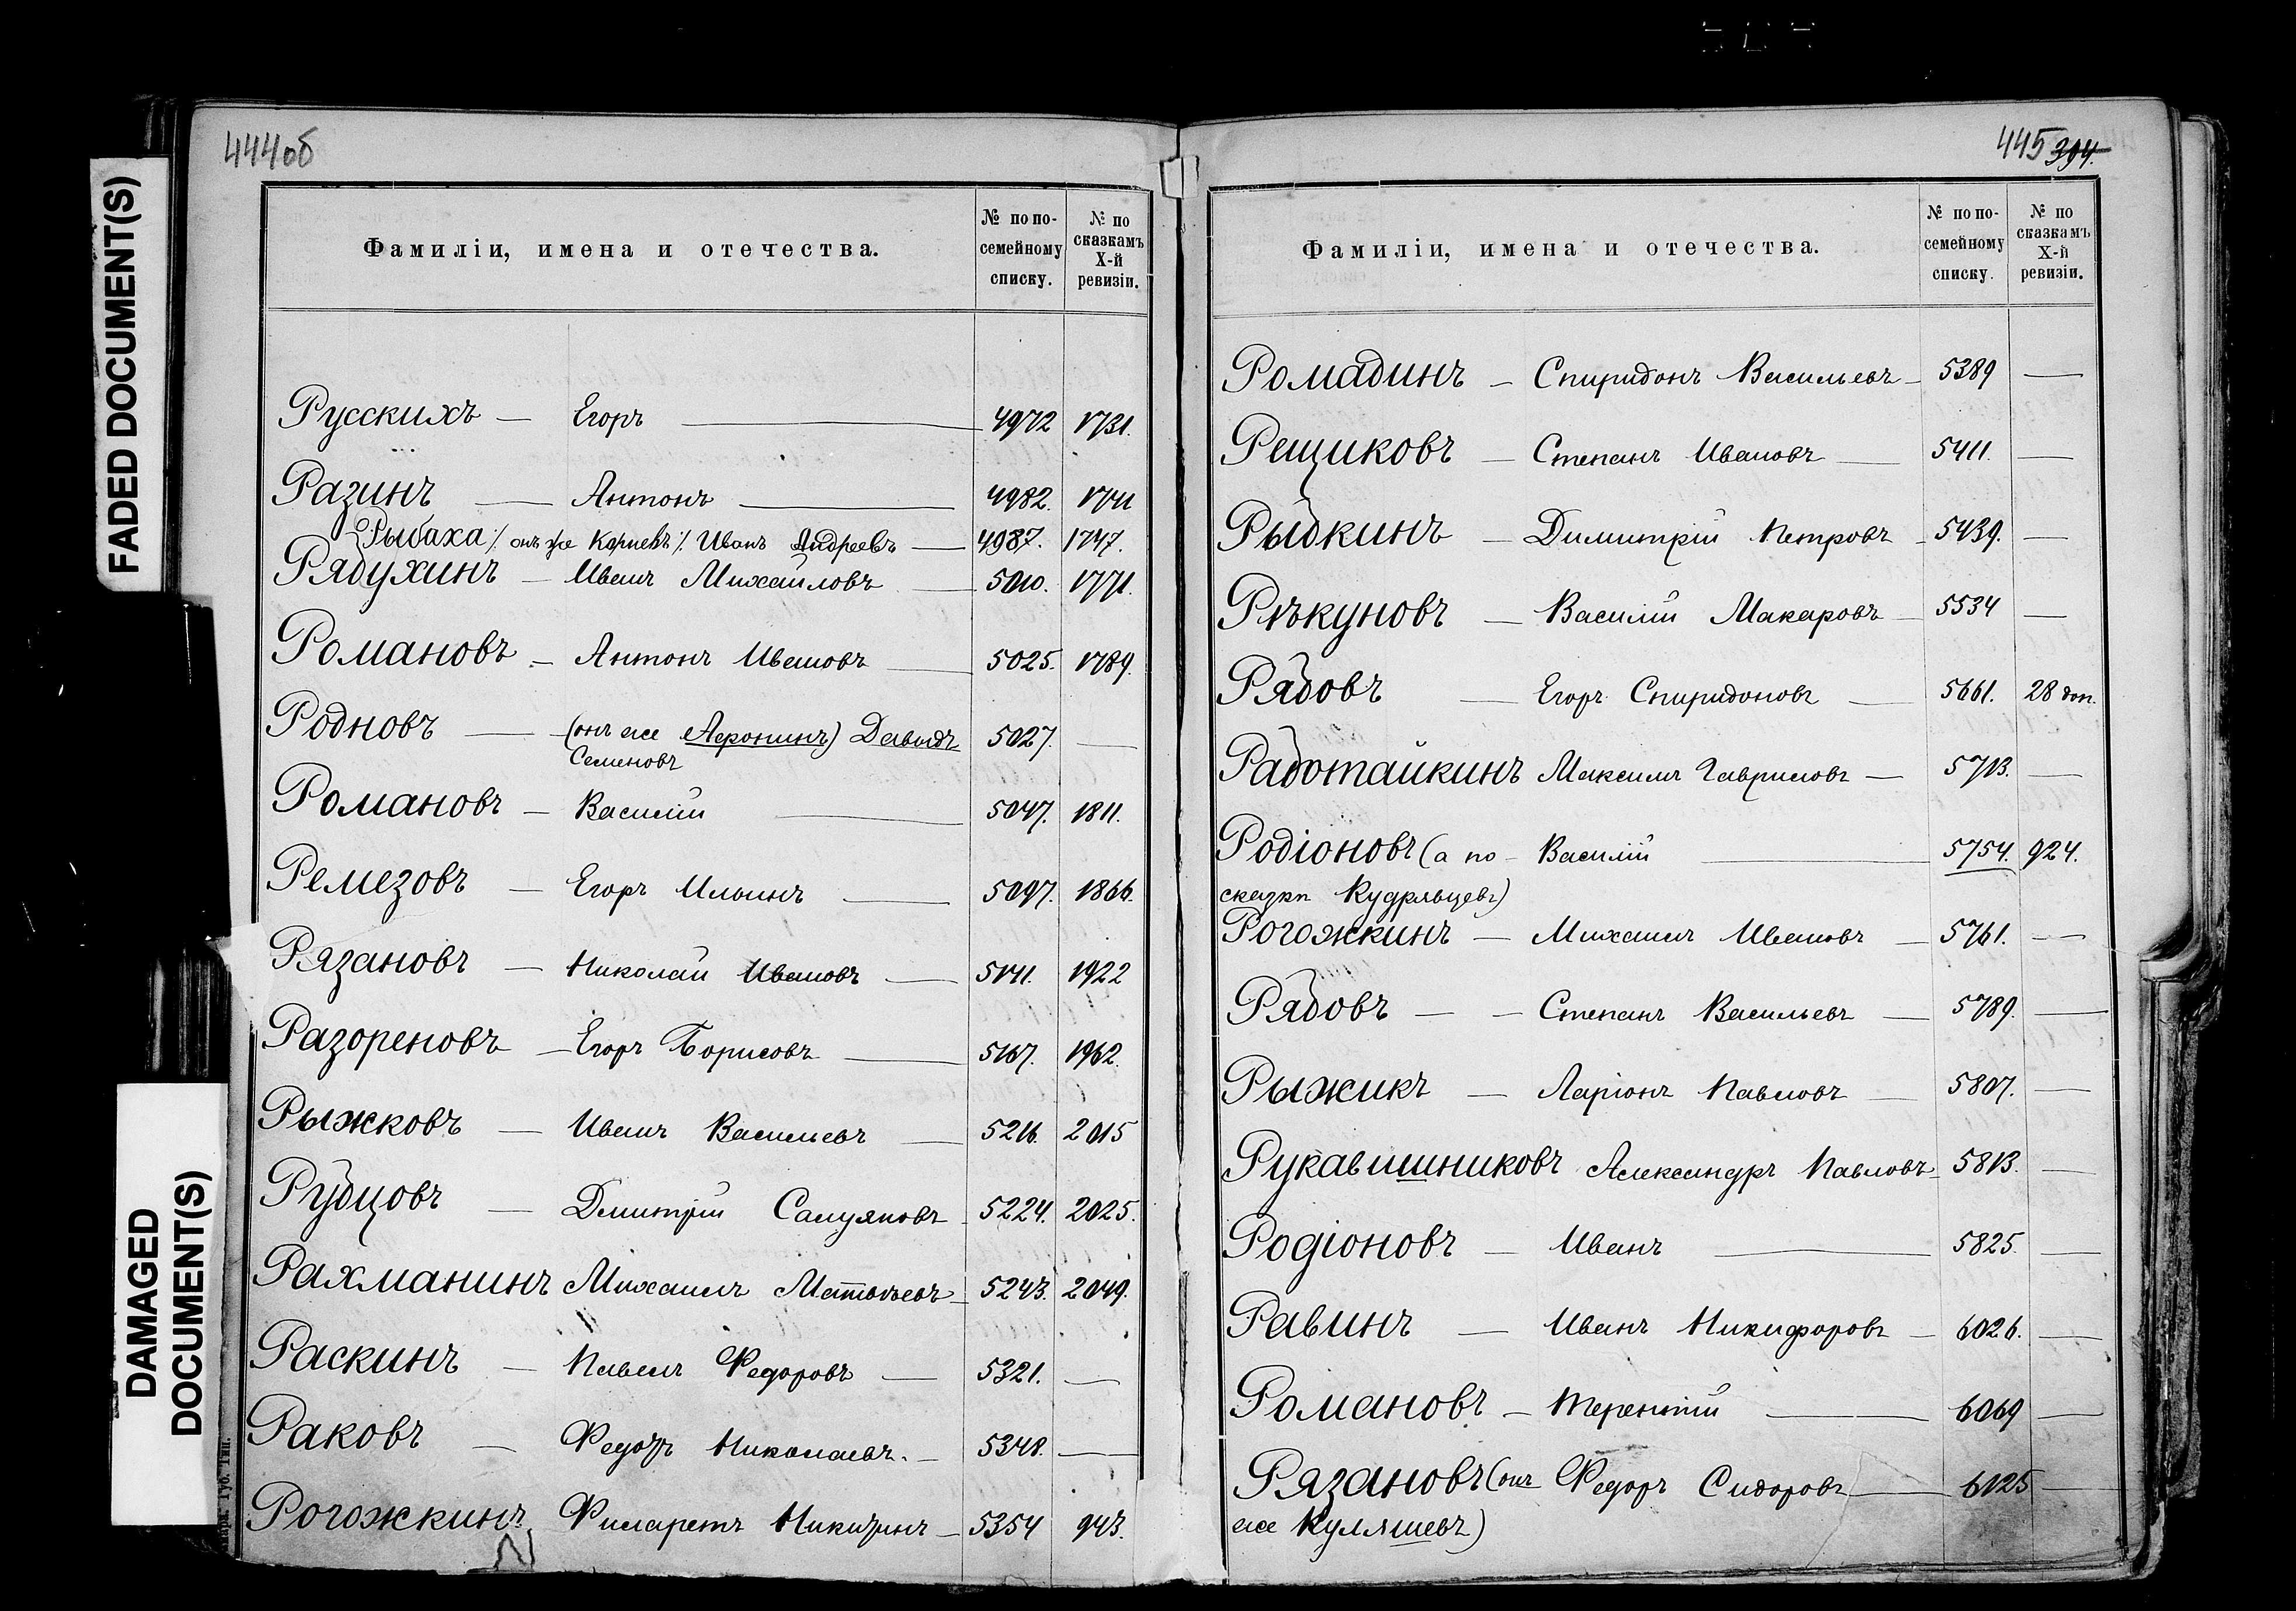 444об
FADED DOCUMENT(S)
DAMAGED
DOCUMENT(S)
Фамиліи, имена и отечества. № по по-семейному списку. № по сказкамъ X-й ревизіи.
Русскихъ — Егоръ — 4972 1731.
Разинъ — Антонъ — 4982. 1741
Рыбаха /: онъ же Корневъ /: Иванъ Андреевъ — 4987. 1747.
Рядухинъ — Иванъ Михайловъ — 5010. 1771.
Романовъ — Антонъ Ивановъ — 5025. 1789.
Родновъ — (онъ же Афонинъ) Давыдъ 5027. —
Семеновъ
Романовъ — Василій — 5047. 1811.
Ремезовъ — Егоръ Ильинъ — 5097. 1866.
Рязановъ — Николай Ивановъ — 5141. 1922
Разореновъ — Егоръ Борисовъ — 5167. 1962.
Рыжковъ — Иванъ Васильевъ — 5216. 2015
Рубцовъ — Дмитрій Самуяновъ 5224. 2025.
Рахманинъ Михаилъ Матвѣевъ — 5243. 2049.
Раскинъ — Павелъ Федоровъ — 5321. —
Раковъ — Федоръ Николаевъ. — 5348. —
Рогожкинъ Филаретъ Никитинъ — 5354 943.
Губ. Тип.
445 394.
Фамиліи, имена и отечества. № по по-семейному списку. № по сказкамъ X-й ревизіи.
Ромадинъ — Спиридонъ Васильевъ — 5389 —
Рещиковъ — Степанъ Ивановъ — 5411. —
Рыбкинъ — Димитрій Петровъ — 5439. —
Рѣкуновъ — Василій Макаровъ — 5534 —
Рябовъ — Егоръ Спиридоновъ — 5661. 28 доп.
Работайкинъ Максимъ Гавриловъ — 5713. —
Родіоновъ (а по — Василій — 5754. 924.
сказкѣ Кудрявцевъ)
Рогожкинъ — Михаилъ Ивановъ — 5761. —
Рябовъ — — Степанъ Васильевъ — 5789. —
Рыжикъ — Ларіонъ Павловъ — 5807. —
Рукавишниковъ Александръ Павловъ — 5813. —
Родіоновъ — Иванъ — 5825. —
Равинъ — Иванъ Никифоровъ — 6026. —
Романовъ — Терентій — 6069 —
Рязановъ (онъ Федоръ Сидоровъ — 6125 —
же Куляшевъ)